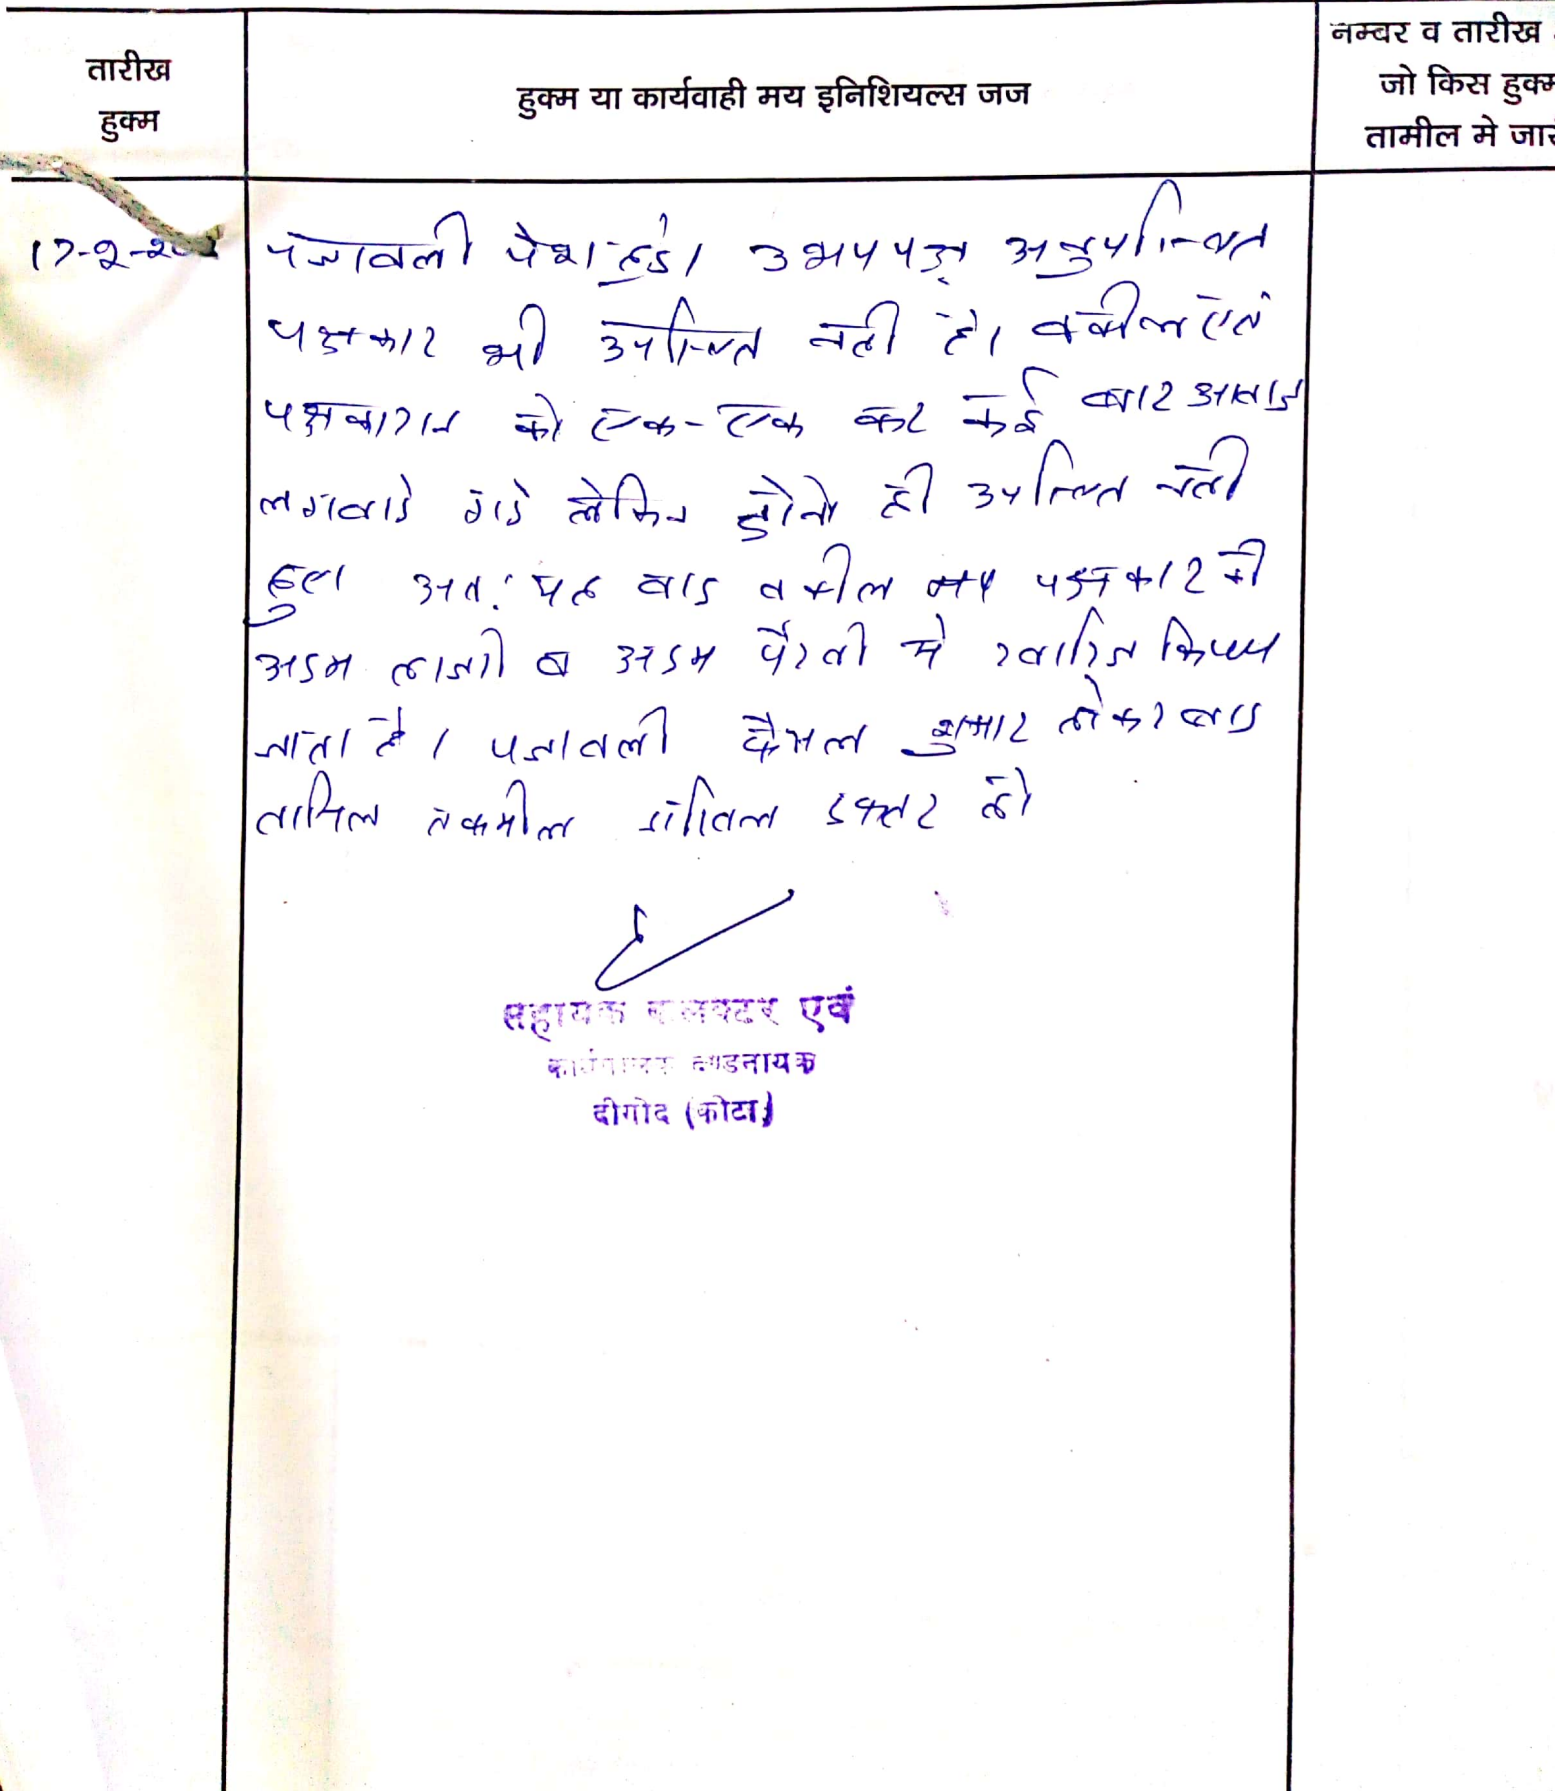 तारीख
हुक्म
हुक्म या कार्यवाही मय इनिशियल्स जज
नम्बर व तारीख
जो किस हुक्म
तामील मे जार
17-2-20
पत्रावली पेश हुई। उभयपक्ष अनुपस्थित
पक्षकार भी उपस्थित नही है। वकील एवं
पक्षकारान को एक-एक कर कई बार आवाज
लगवाई गई लेकिन दोनो ही उपस्थित नही
हुए। अतः यह वाद वकील मय पक्षकार की
अदम हाजरी व अदम पैरवी मे खारिज किया
जाता है। पत्रावली फैसल शुमार होकर बाद
तामिल तकमील दाखिल दफ्तर हो
सहायक कलक्टर एवं
कार्यपालक दण्डनायक
दीगोद (कोटा)